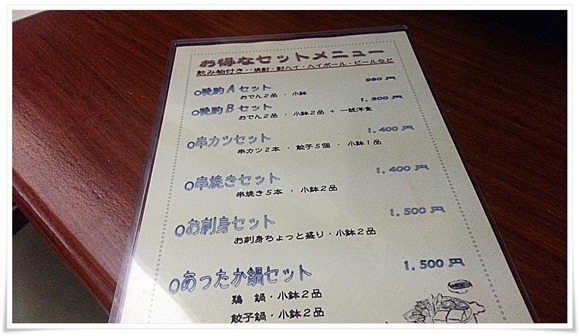 お得なセットメニュー
飲み物付き・・焼酎・酎ハイ・ハイボール・ビールなど
○晩酌Aセット 980円
おでん2品 ・ 小鉢
○晩酌Bセット 1,300円
おでん2品 ・ 小鉢2品 + 一銭洋食
○串カツセット 1,400円
串カツ2本 ・ 餃子5個 ・ 小鉢1品
○串焼きセット 1,400円
串焼き5本 ・ 小鉢2品
○お刺身セット 1,500円
お刺身ちょっと盛り・小鉢2品
○あったか鍋セット 1,500円
鶏 鍋・小鉢2品
餃子鍋・小鉢2品